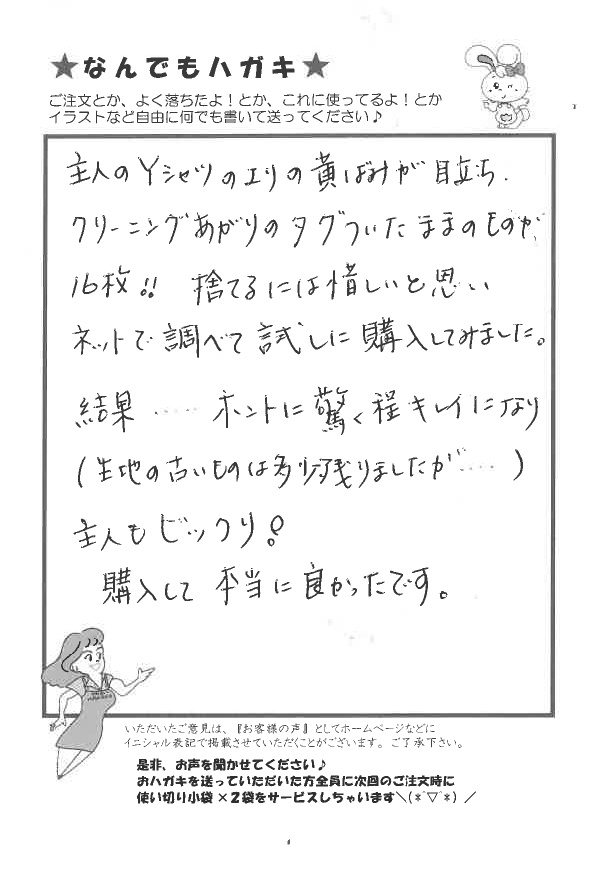 ★なんでもハガキ★
ご注文とか、よく落ちたよ！とか、これに使ってるよ！とか
イラストなど自由に何でも書いて送ってください♪
主人のYシャツのエリの黄ばみが目立ち、
クリーニングあがりのタグついたままのものが、
16枚!! 捨てるには惜しいと思い
ネットで調べて試しに購入してみました。
結果……ホントに驚く程キレイになり
(生地の古いものは多少残りましたが……)
主人もビックリ!
購入して本当に良かったです。
いただいたご意見は、『お客様の声』としてホームページなどに
イニシャル表記で掲載させていただくことがございます。ご了承下さい。
是非、お声を聞かせてください♪
おハガキを送っていただいた方全員に次回のご注文時に
使い切り小袋×2袋をサービスしちゃいます＼(*ﾟ▽ﾟ*)／